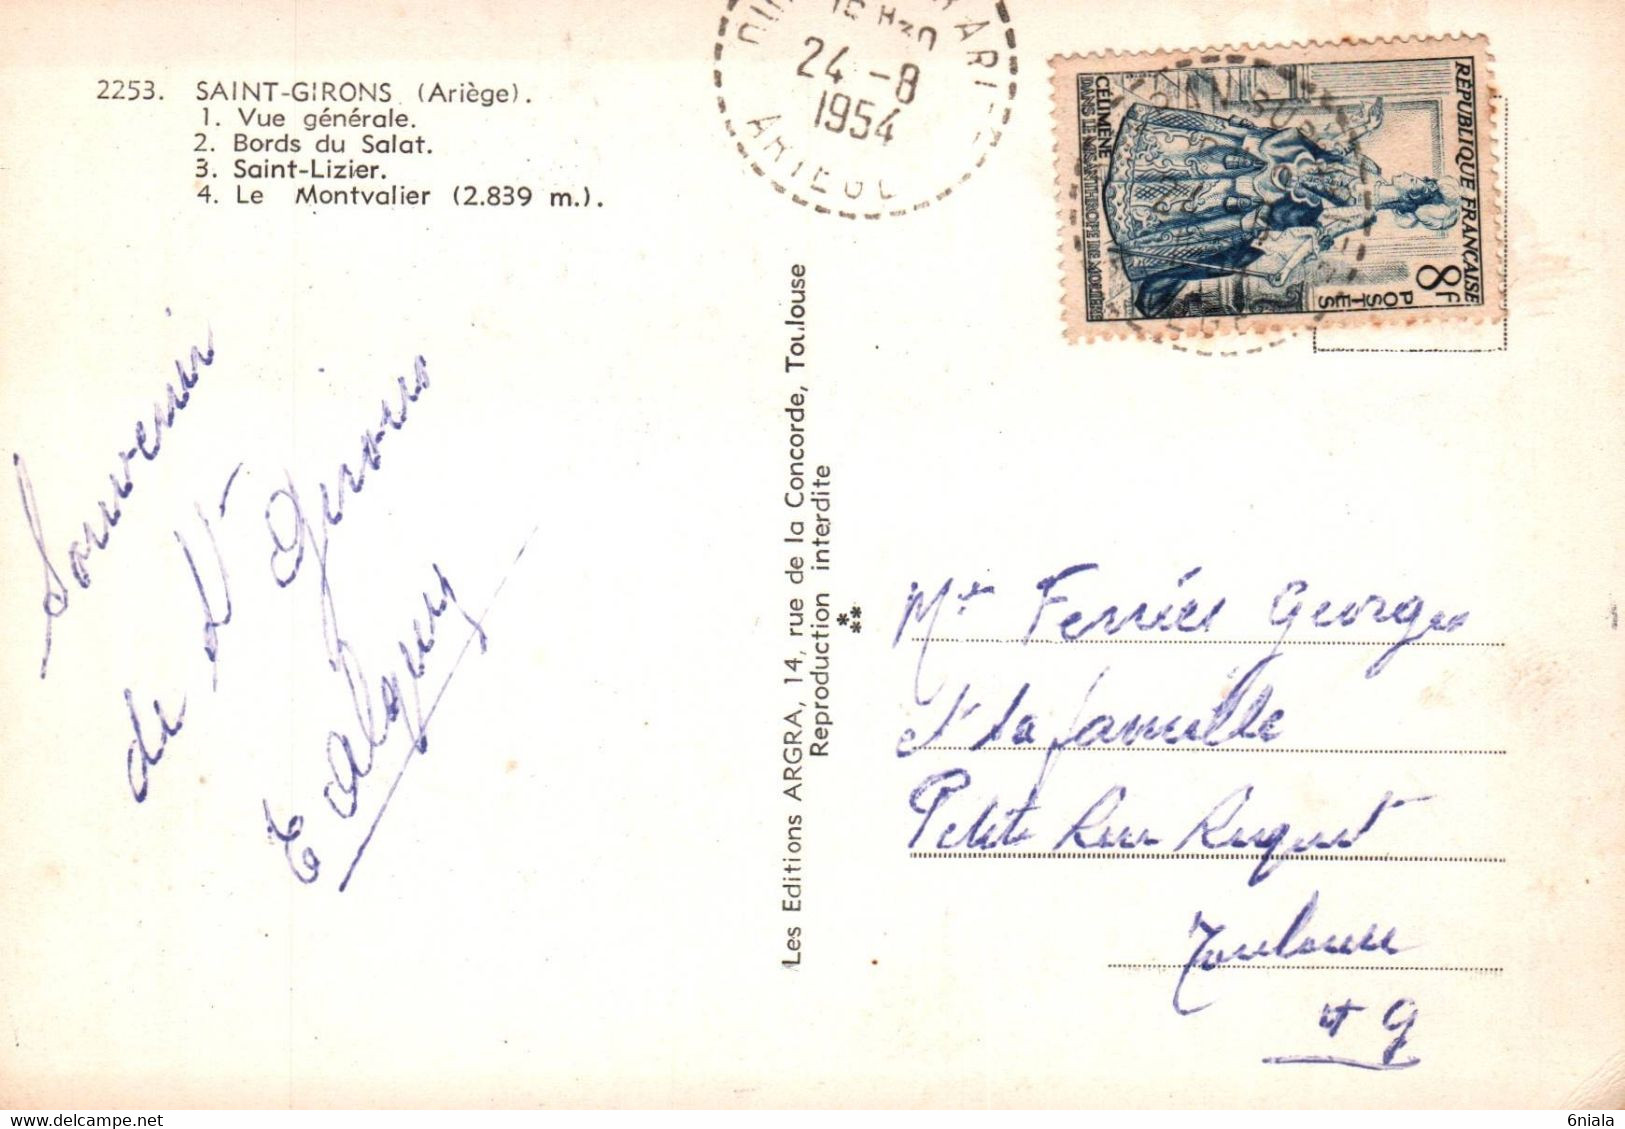 2253. SAINT-GIRONS (Ariège).
1. Vue générale.
2. Bords du Salat.
3. Saint-Lizier.
4. Le Montvalier (2.839 m.).
16 H30
24 -8
1954
ARIEGE
REPUBLIQUE FRANÇAISE
8F
POSTES
CÉLIMÈNE
DANS LE MISANTHROPE DE MOLIÈRE
Souvenir
de St Girons
Les Editions ARGRA, 14, rue de la Concorde, Toulouse
Reproduction interdite
***
Mr Ferriés Georges
et la famille
Petite Rue Riquet
Toulouse
H G
6niala